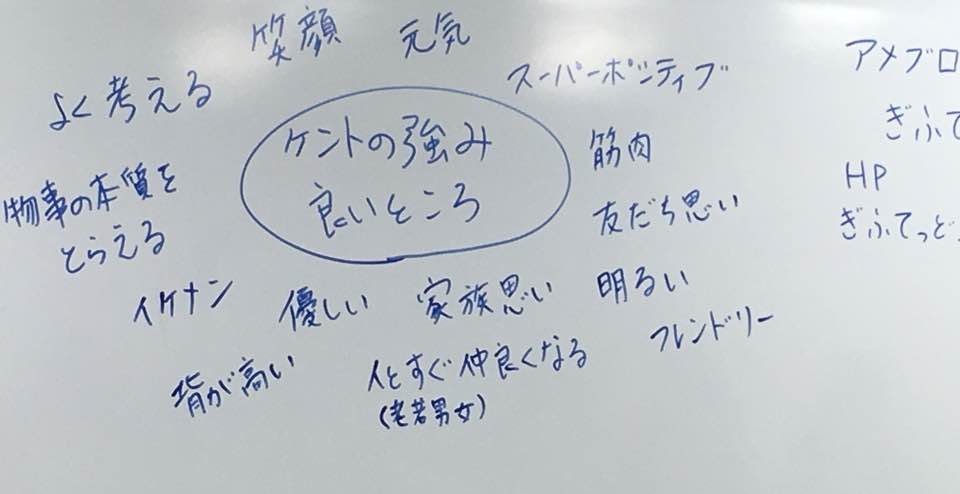 笑顔
元気
スーパーポジティブ
よく考える
ケントの強み
良いところ
筋肉
友だち思い
物事の本質を
とらえる
イケメン
優しい
家族思い
明るい
背が高い
人とすぐ仲良くなる
(老若男女)
フレンドリー
アメブロ
ぎふて
HP
ぎふてっど